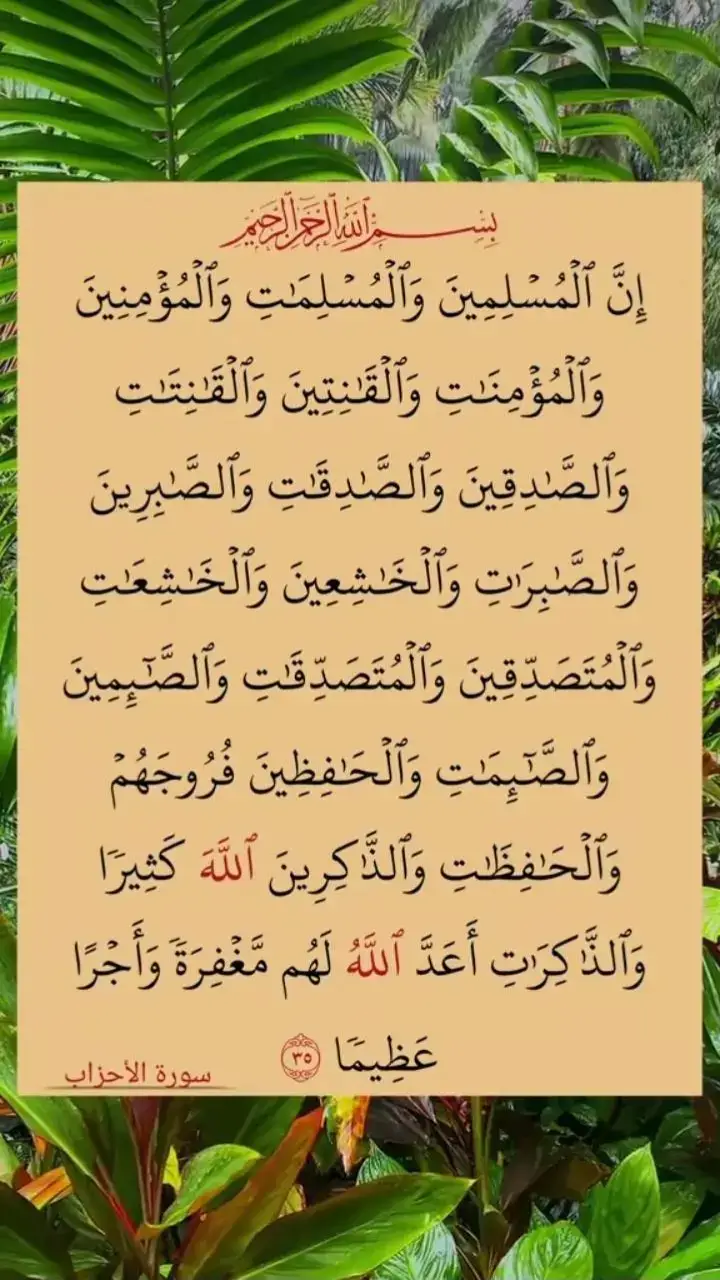 بِسْمِ ٱللَّهِ ٱلرَّحْمَٰنِ ٱلرَّحِيمِ
إِنَّ ٱلْمُسْلِمِينَ وَٱلْمُسْلِمَـٰتِ وَٱلْمُؤْمِنِينَ
وَٱلْمُؤْمِنَـٰتِ وَٱلْقَـٰنِتِينَ وَٱلْقَـٰنِتَـٰتِ
وَٱلصَّـٰدِقِينَ وَٱلصَّـٰدِقَـٰتِ وَٱلصَّـٰبِرِينَ
وَٱلصَّـٰبِرَٰتِ وَٱلْخَـٰشِعِينَ وَٱلْخَـٰشِعَـٰتِ
وَٱلْمُتَصَدِّقِينَ وَٱلْمُتَصَدِّقَـٰتِ وَٱلصَّـٰٓئِمِينَ
وَٱلصَّـٰٓئِمَـٰتِ وَٱلْحَـٰفِظِينَ فُرُوجَهُمْ
وَٱلْحَـٰفِظَـٰتِ وَٱلذَّٰكِرِينَ ٱللَّهَ كَثِيرًا
وَٱلذَّٰكِرَٰتِ أَعَدَّ ٱللَّهُ لَهُم مَّغْفِرَةً وَأَجْرًا
عَظِيمًا ٣٥
سورة الأحزاب